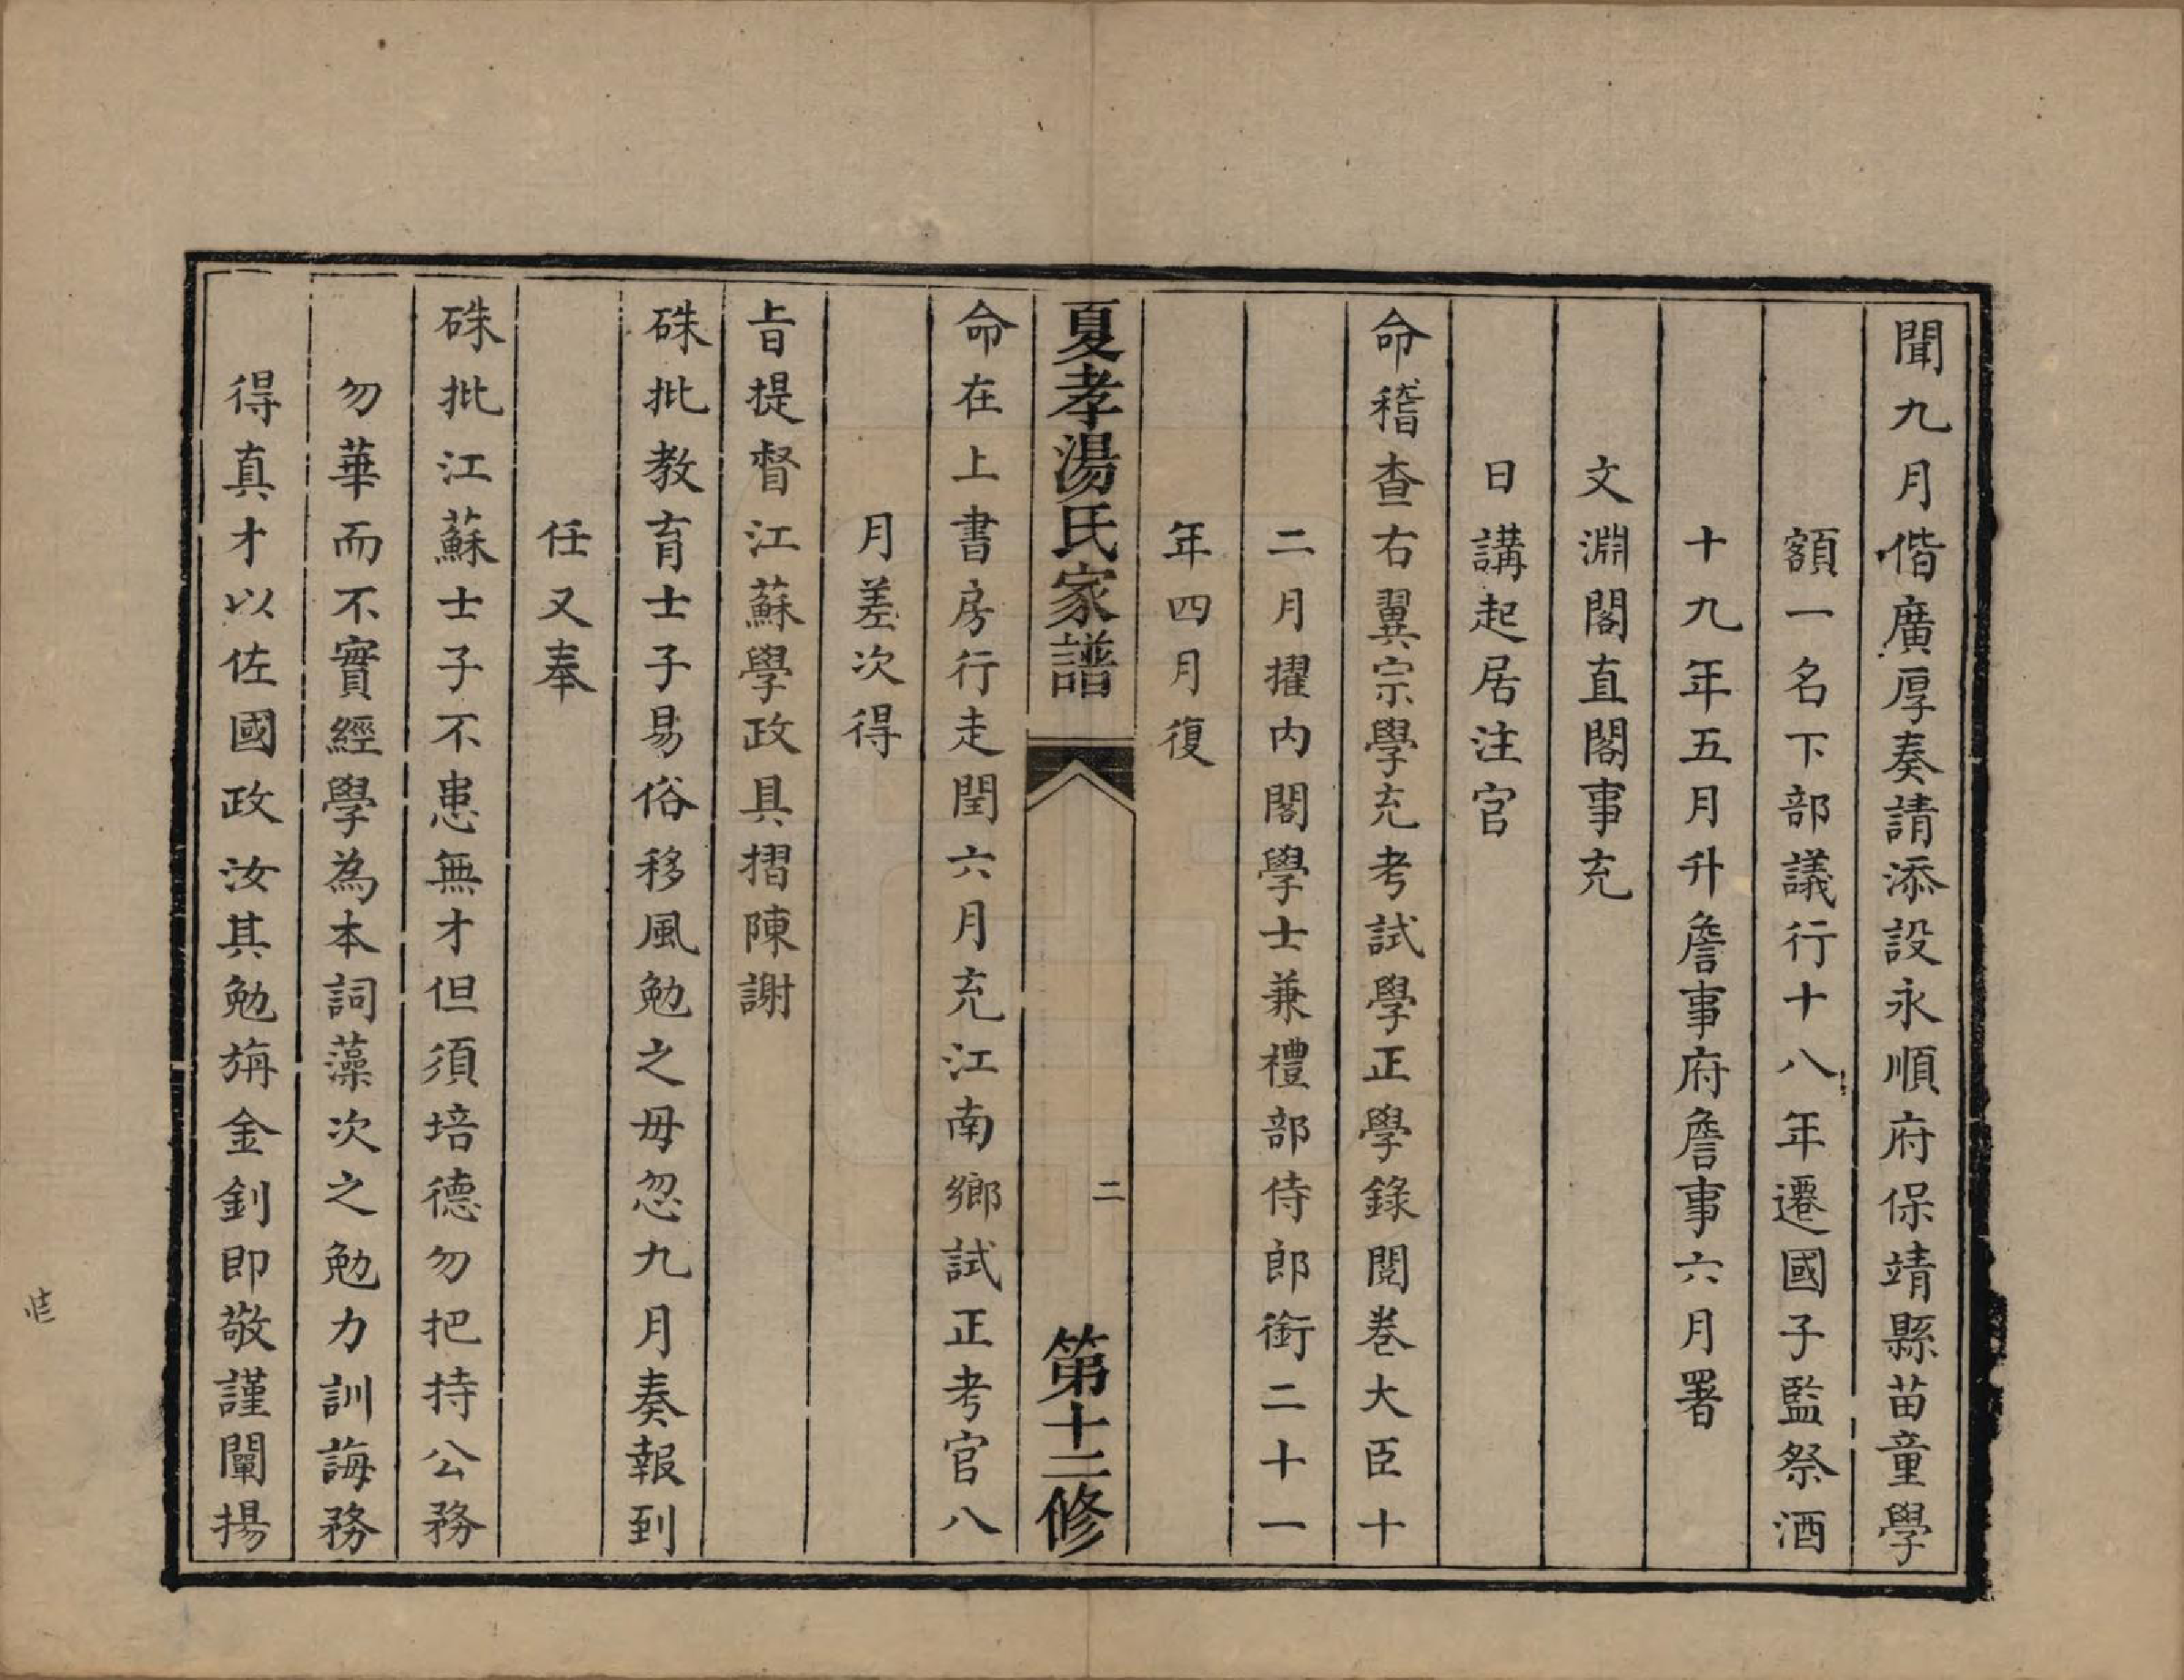 聞九月偕廣厚奏請添設永順府保靖縣苗童學
額一名下部議行十八年遷國子監祭酒
十九年五月升詹事府詹事六月署
文淵閣直閣事充
日講起居注官
命稽查右翼宗學充考試學正學錄閱卷大臣十
二月擢內閣學士兼禮部侍郎銜二十一
年四月復
夏孝湯氏家譜
二
第十二修
命在上書房行走閏六月充江南鄉試正考官八
月差次得
旨提督江蘇學政具摺陳謝
硃批教育士子易俗移風勉之毋忽九月奏報到
任又奉
硃批江蘇士子不患無才但須培德勿把持公務
勿華而不實經學為本詞藻次之勉力訓誨務
得真才以佐國政汝其勉旃金釗即敬謹闡揚